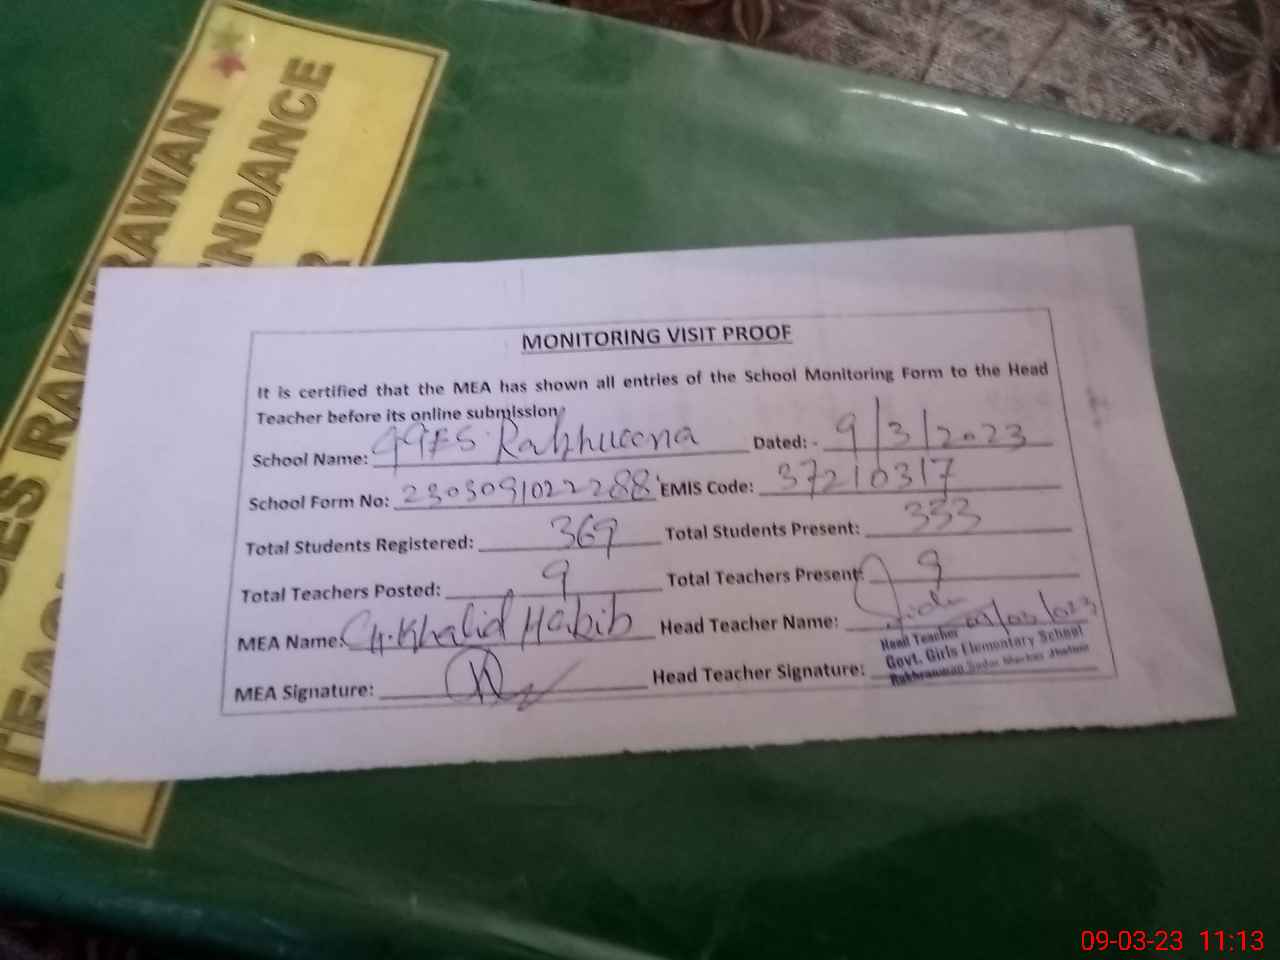 RAKHRAWAN
MONITORING VISIT PROOF
It is certified that the MEA has shown all entries of the School Monitoring Form to the Head
Teacher before its online submission
School Name: GGES Dated: - 9/3/2023
School Form No: 2303091022288 EMIS Code: 37210317
Total Students Registered: 369 Total Students Present: 333
Total Teachers Posted: 9 Total Teachers Present: 9
MEA Name: Ch. Khalid Habib Head Teacher Name:
MEA Signature: Head Teacher Signature:
Head Teacher
Govt. Girls Elementary School
09-03-23 11:13